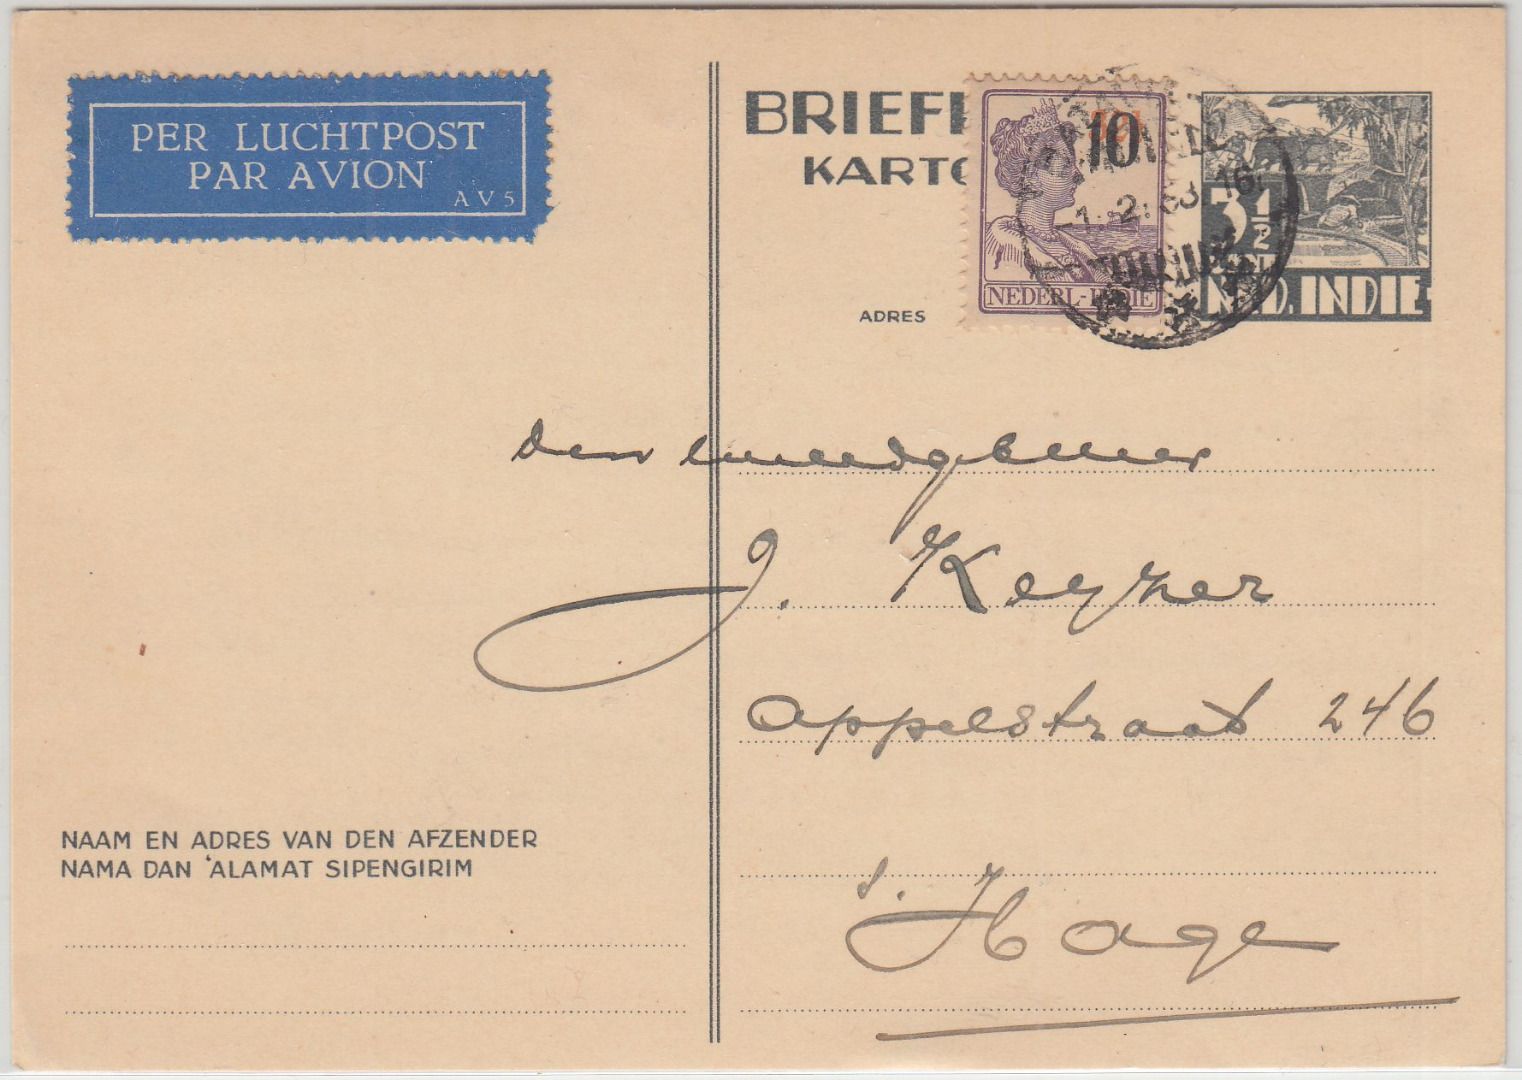 PER LUCHTPOST
PAR AVION
AV5
BRIEFK
KARTO
ADRES
10
NEDERL-INDIE
1.2.38.16
3½
NED. INDIE
den weledgeb Heer
J. Keyzer
Appelstraat 246
s. Hage
NAAM EN ADRES VAN DEN AFZENDER
NAMA DAN 'ALAMAT SIPENGIRIM